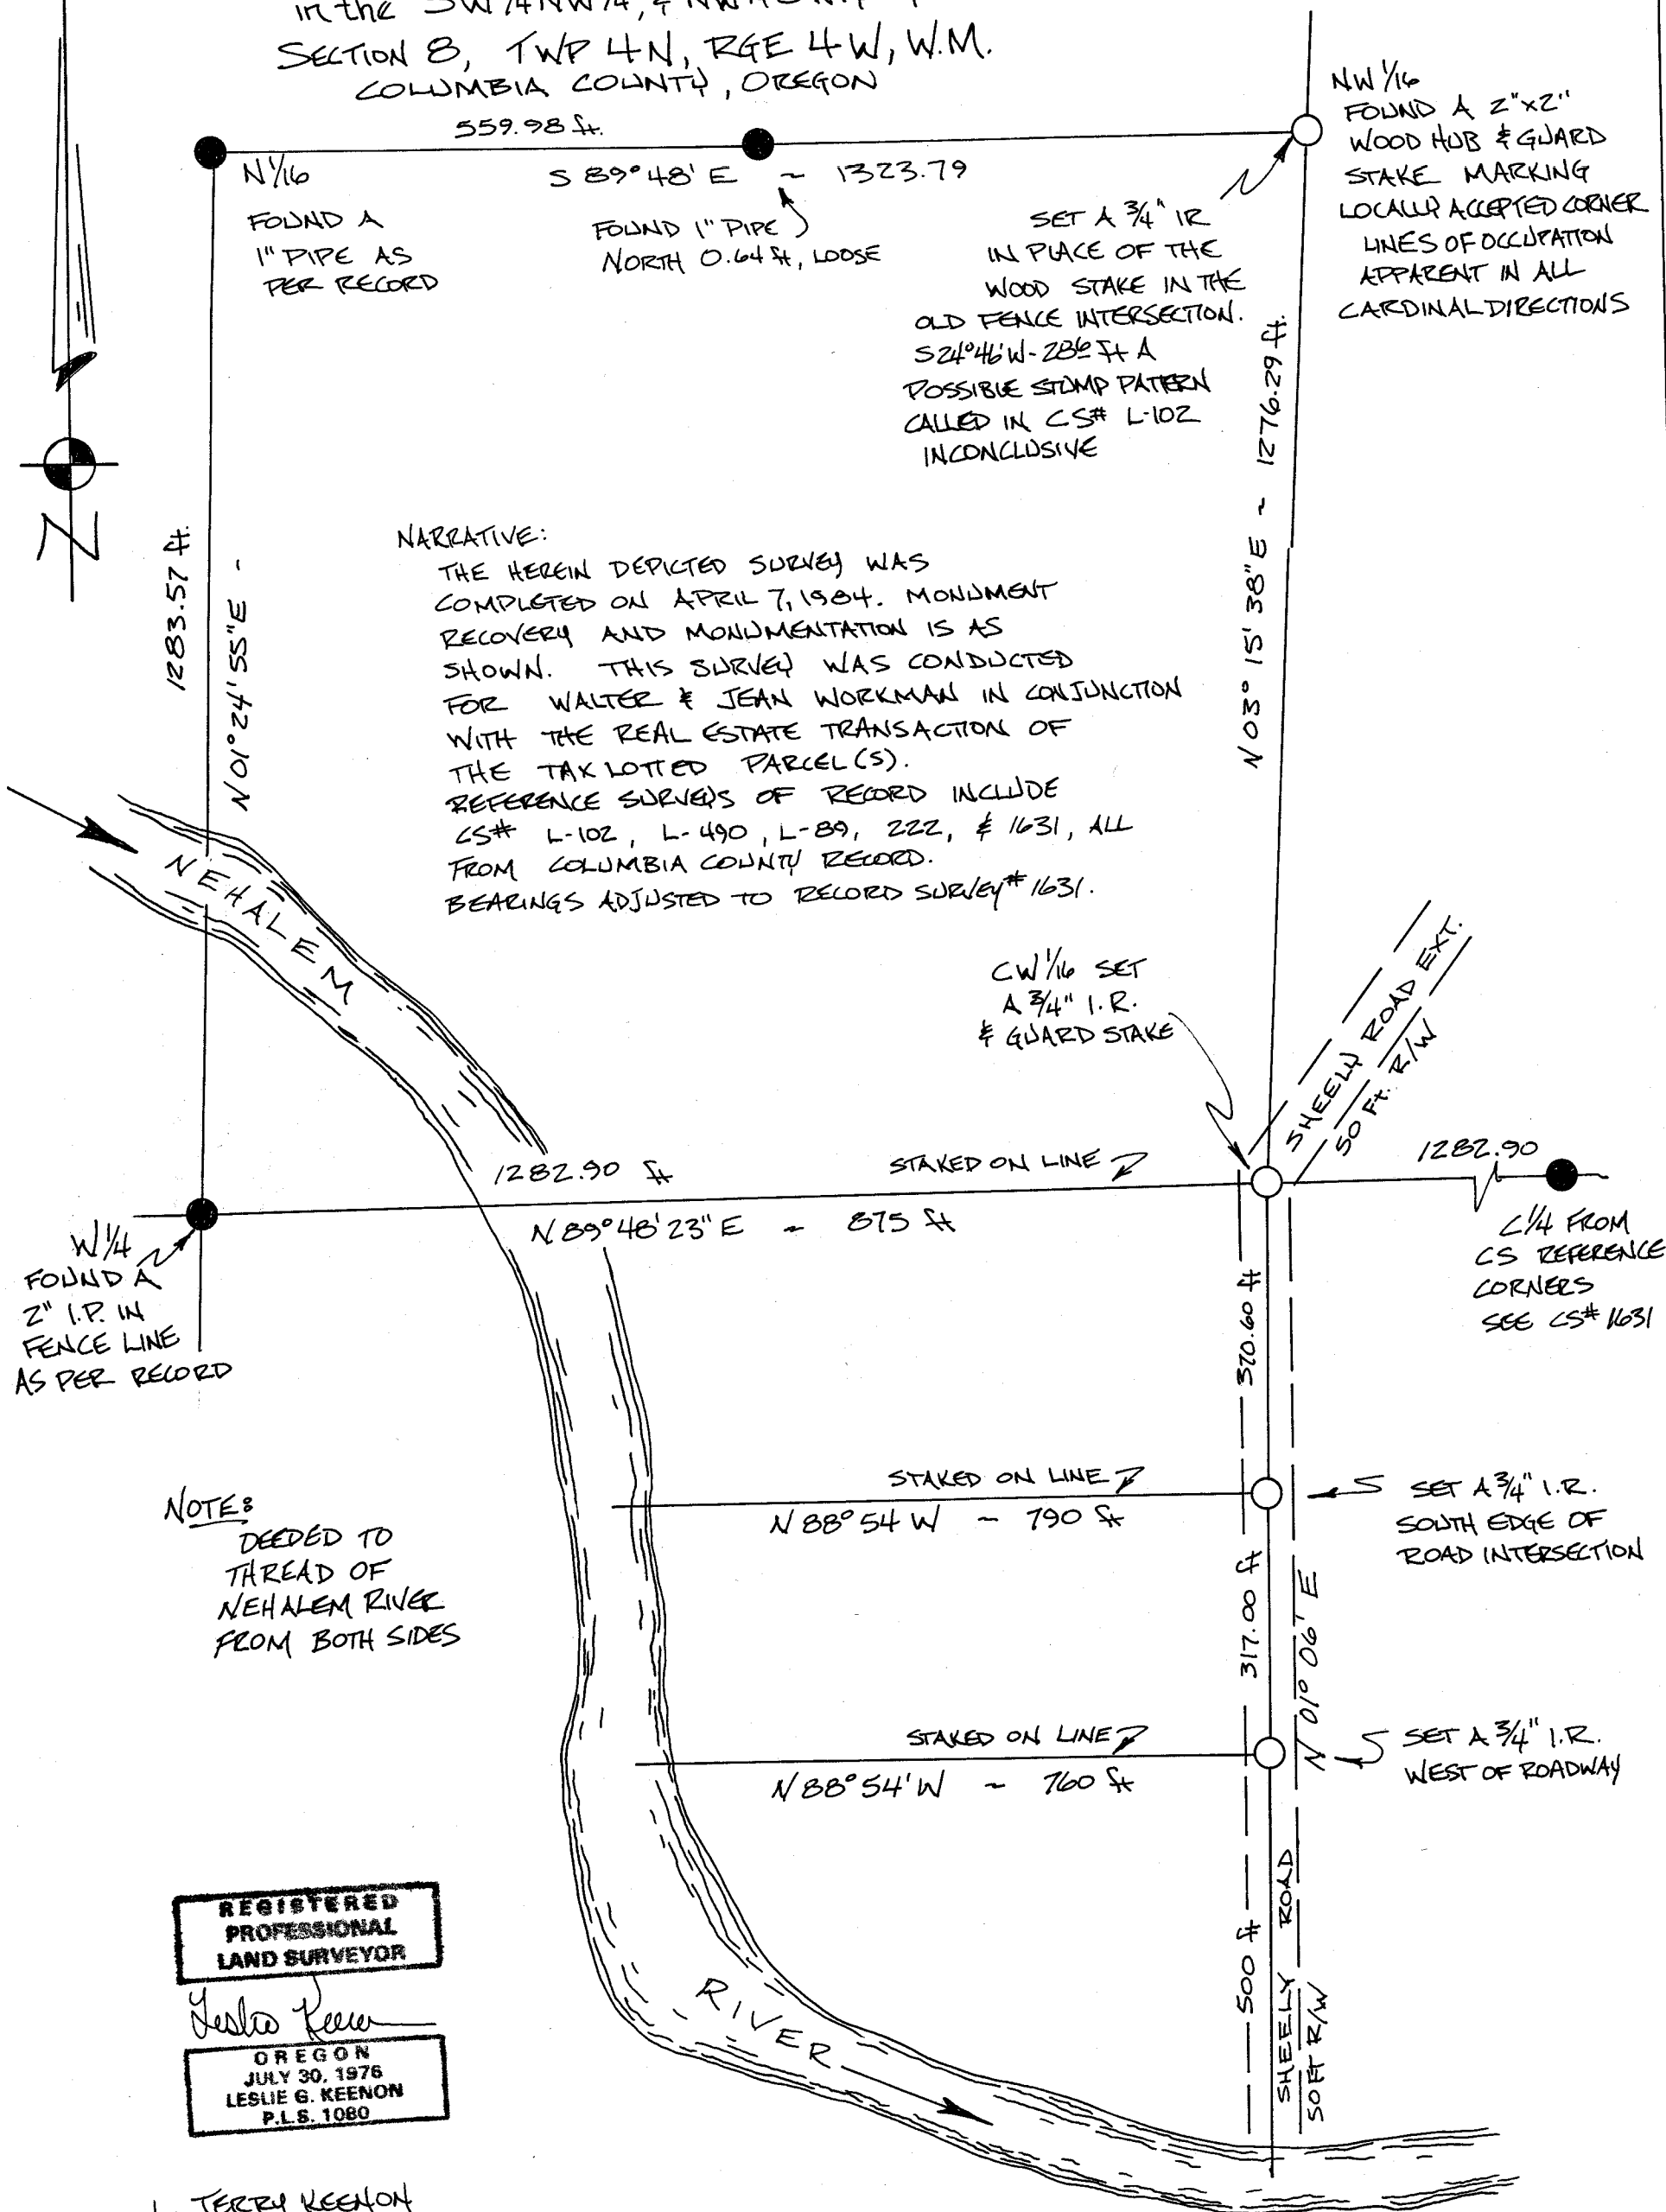 in the SW 1/4 NW 1/4, & NW 1/4
SECTION 8, TWP 4N, RGE 4W, W.M.
COLUMBIA COUNTY, OREGON
559.98 ft.
S 89°48' E ~ 1323.79
N 1/16
FOUND A
1" PIPE AS
PER RECORD
FOUND 1" PIPE
NORTH 0.64 ft, LOOSE
SET A 3/4" IR
IN PLACE OF THE
WOOD STAKE IN THE
OLD FENCE INTERSECTION.
S24°46'W- ft A
POSSIBLE STUMP PATTERN
CALLED IN CS# L-102
INCONCLUSIVE
NW 1/16
FOUND A 2"x2"
WOOD HUB & GUARD
STAKE MARKING
LOCALLY ACCEPTED CORNER
LINES OF OCCUPATION
APPARENT IN ALL
CARDINAL DIRECTIONS
N
1283.57 ft.
N 01°24'55"E -
N 03°15'38"E ~ 1276.29 ft.
NARRATIVE:
THE HEREIN DEPICTED SURVEY WAS
COMPLETED ON APRIL 7, 1984. MONUMENT
RECOVERY AND MONUMENTATION IS AS
SHOWN. THIS SURVEY WAS CONDUCTED
FOR WALTER & JEAN WORKMAN IN CONJUNCTION
WITH THE REAL ESTATE TRANSACTION OF
THE TAX LOTTED PARCEL(S).
REFERENCE SURVEYS OF RECORD INCLUDE
CS# L-102, L-490, L-89, 222, & 1631, ALL
FROM COLUMBIA COUNTY RECORD.
BEARINGS ADJUSTED TO RECORD SURVEY# 1631.
NEHALEM
CW 1/16 SET
A 3/4" I.R.
& GUARD STAKE
SHEELY ROAD EXT.
50 Ft. R/W
1282.90 ft
STAKED ON LINE
1282.90
N 89°48'23"E ~ 875 ft
W 1/4
FOUND A
2" I.P. IN
FENCE LINE
AS PER RECORD
C 1/4 FROM
CS REFERENCE
CORNERS
SEE CS# 1631
320.60 ft
STAKED ON LINE
N 88°54 W ~ 790 ft
SET A 3/4" I.R.
SOUTH EDGE OF
ROAD INTERSECTION
NOTE:
DEEDED TO
THREAD OF
NEHALEM RIVER
FROM BOTH SIDES
317.00 ft
N 01° 06' E
STAKED ON LINE
N 88°54'W ~ 760 ft
SET A 3/4" I.R.
WEST OF ROADWAY
500 ft
SHEELY ROAD
50 FT R/W
RIVER
REGISTERED
PROFESSIONAL
LAND SURVEYOR
Leslie Keenon
OREGON
JULY 30, 1976
LESLIE G. KEENON
P.L.S. 1080
TERRY KEENON